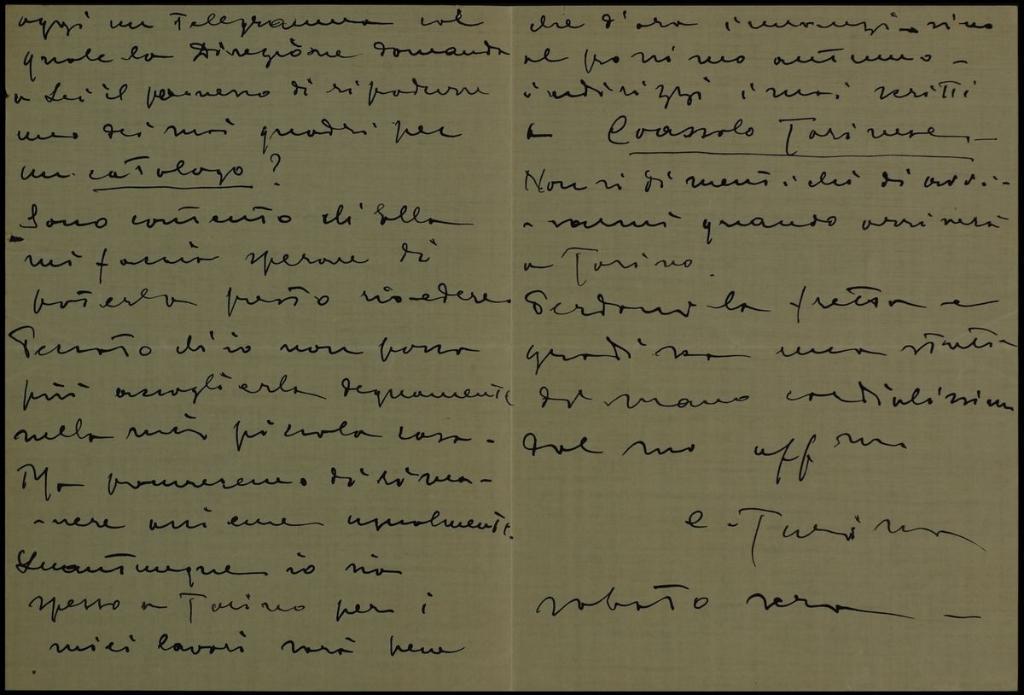 oggi un Telegramma col
quale la Direzione domanda
a Lei il permesso di riprodurre
uno dei suoi quadri per
un catalogo?
Sono contento ch'Ella
mi faccia sperare di
poterla presto rivedere
Peccato ch'io non possa
più accoglierla degnamente
nella mia piccola casa -
Ma procureremo di rima-
-nere assieme ugualmente.
Quantunque io sia
spesso a Torino per i
miei lavori sarà bene
che d'ora innanzi sino
al prossimo autunno -
indirizzi i suoi scritti
a Coassolo Torinese -
Non si dimentichi di avvi-
-sarmi quando arriverà
a Torino.
Perdoni la fretta e
gradisca una stretta
di mano cordialissima
dal suo affmo
sabato sera -